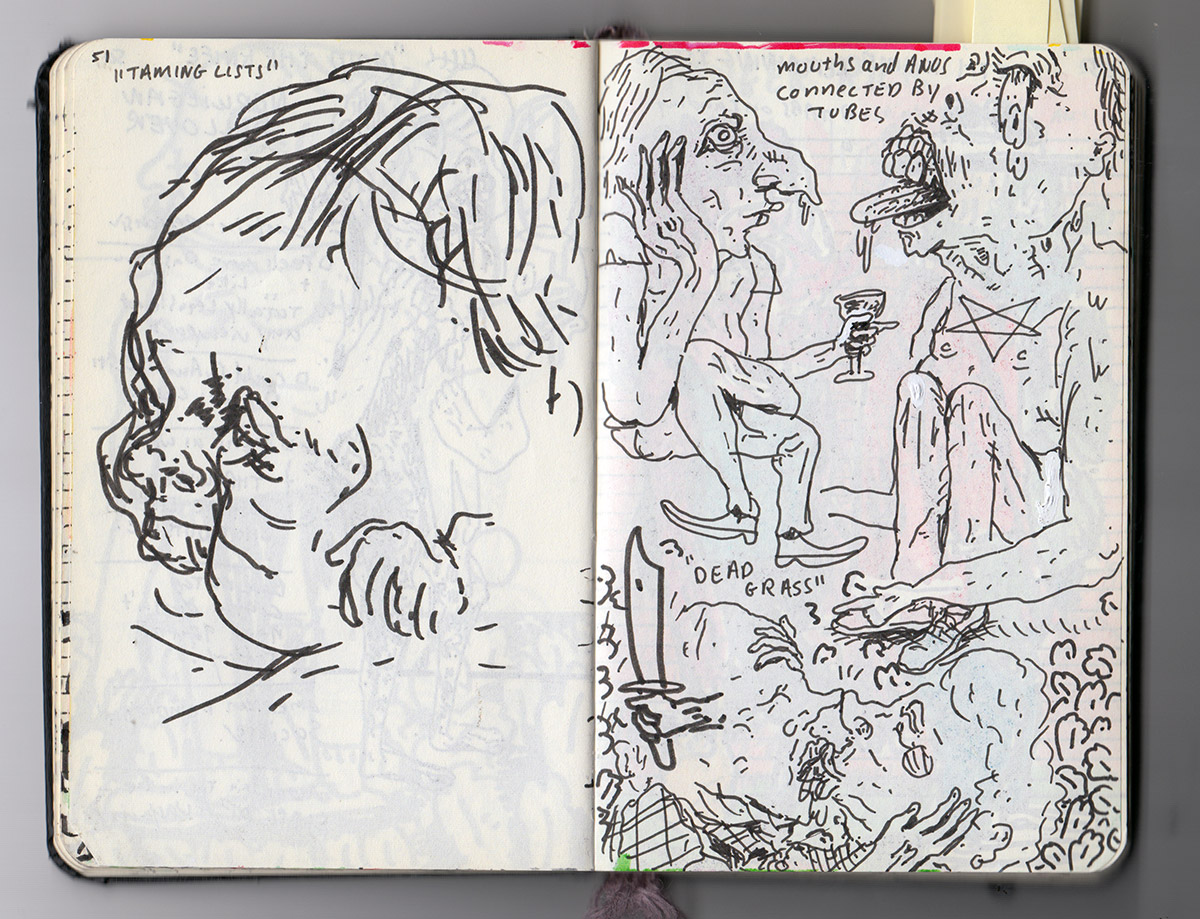 51
"TAMING LISTS"
mouths and ANUS
connected BY
TUBES
"DEAD
GRASS"